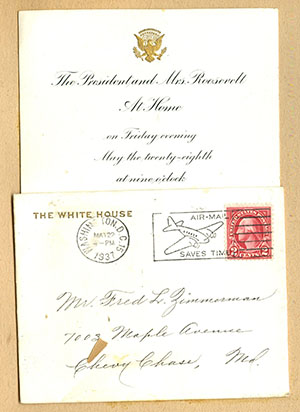 The President and Mrs. Roosevelt
At Home
on Friday evening
May the twenty-eighth
at nine o'clock
THE WHITE HOUSE
WASHINGTON, D.C. 15
MAY 22
PM
1937
AIR-MAIL
SAVES TIME
2 CENTS 2
Mr. Fred L. Zimmerman
7002 Maple Avenue
Chevy Chase, Md.